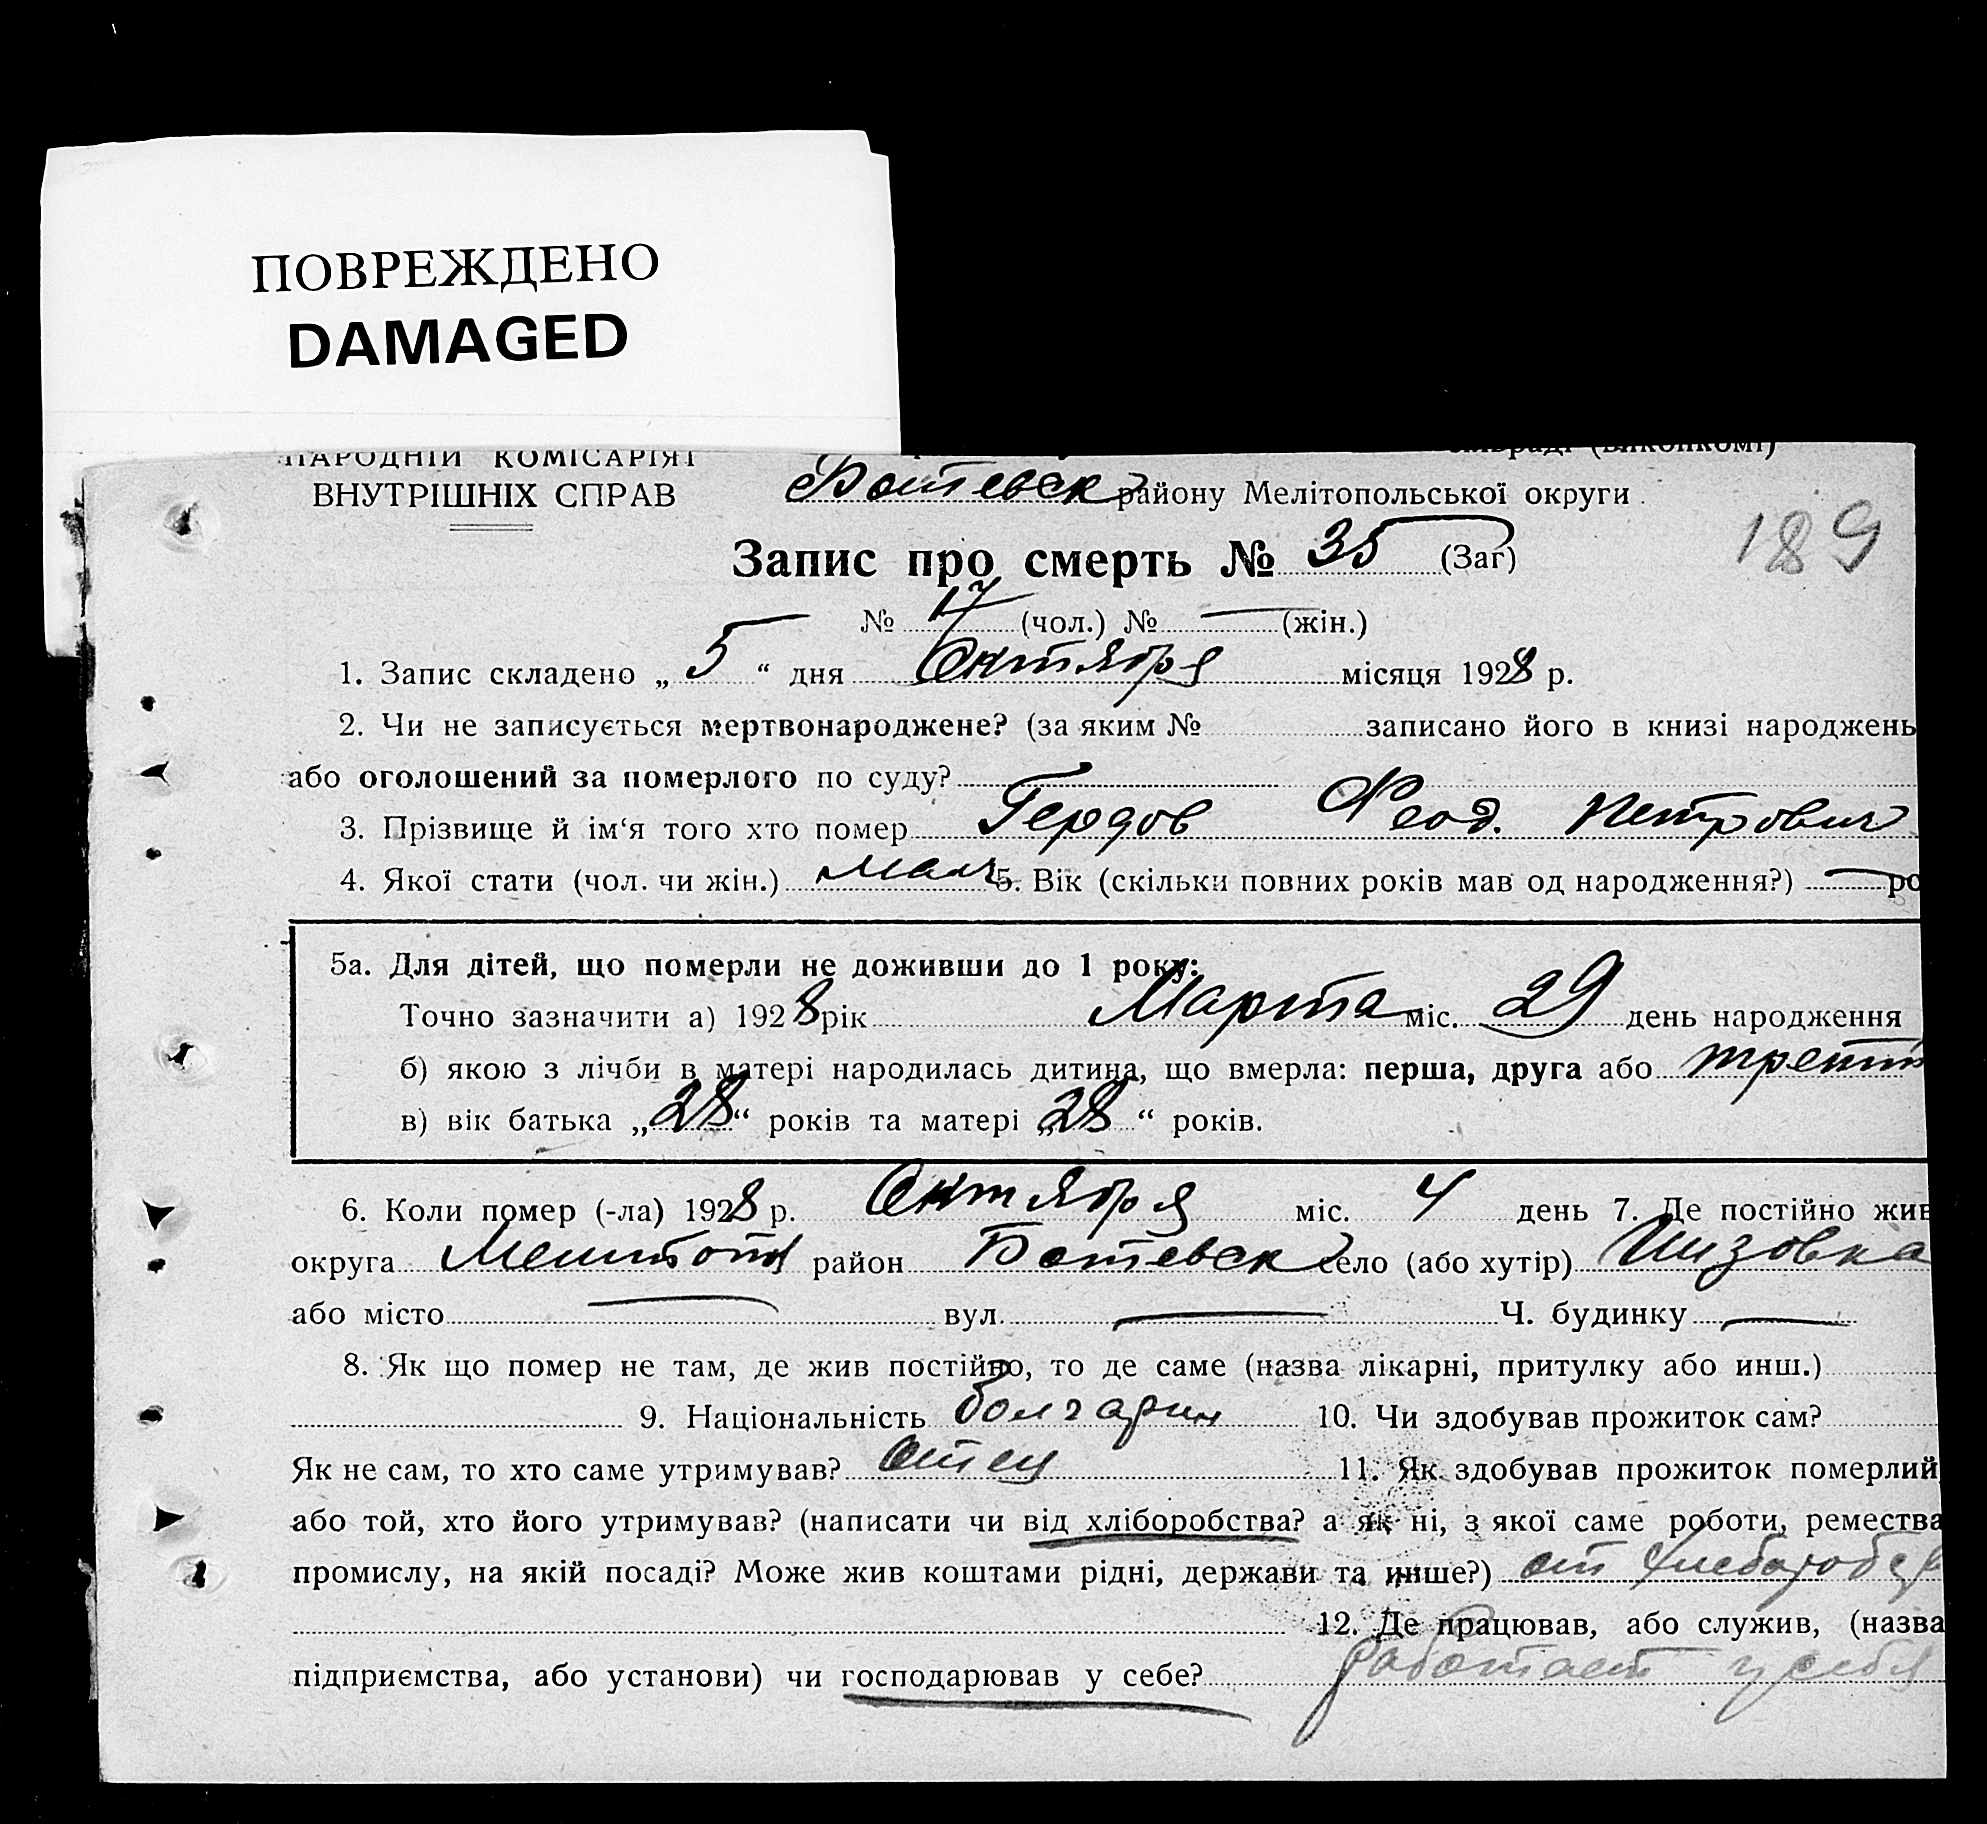 ПОВРЕЖДЕНО
DAMAGED
НАРОДНІЙ КОМІСАРІЯТ
ВНУТРІШНІХ СПРАВ
(виконкомі)
Ботевск району Мелітопольської округи
189
Запис про смерть № 35 (Заг)
№ 17 (чол.) № — (жін.)
1. Запис складено „ 5 “ дня Октября місяця 1928 р.
2. Чи не записується мертвонароджене? (за яким № записано його в книзі народжень
або оголошений за померлого по суду?
3. Прізвище й ім‘я того хто помер Гердов Феод. Петрович
4. Якої стати (чол. чи жін.) мальч 5. Вік (скільки повних років мав од народження?) — ро
5а. Для дітей, що померли не доживши до 1 року:
Точно зазначити а) 1928 рік Марта міс. 29 день народження
б) якою з лічби в матері народилась дитина, що вмерла: перша, друга або
в) вік батька „ 28 “ років та матері „ 28 “ років.
6. Коли помер (-ла) 1928 р. Октября міс. 4 день 7. Де постійно жив
округа Мелитоп район Ботевск село (або хутір)
або місто — вул. — Ч. будинку —
8. Як що помер не там, де жив постійно, то де саме (назва лікарні, притулку або инш.)
9. Національність болгарин 10. Чи здобував прожиток сам?
Як не сам, то хто саме утримував? отец 11. Як здобував прожиток померлий
або той, хто його утримував? (написати чи від хліборобства? а як ні, з якої саме роботи, ремества
промислу, на якій посаді? Може жив коштами рідні, держави та инше?) от
12. Де працював, або служив, (назва
підприємства, або установи) чи господарював у себе? работает у себя